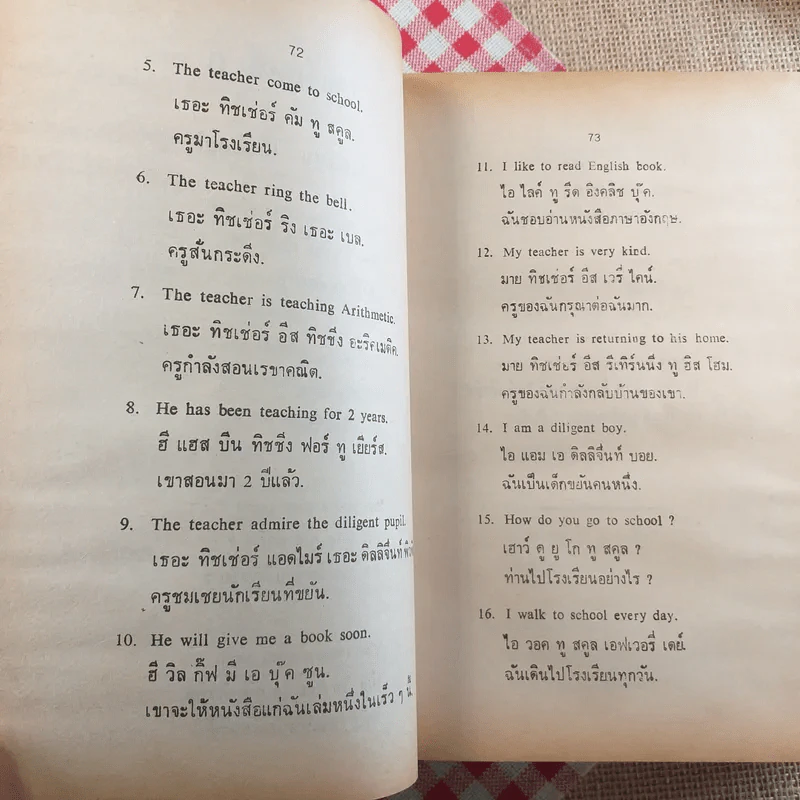 72
5. The teacher come to school.
เธอะ ทิชเช่อร์ คัม ทู สคูล.
ครูมาโรงเรียน.
6. The teacher ring the bell.
เธอะ ทิชเช่อร์ ริง เธอะ เบล.
ครูสั่นกระดิ่ง.
7. The teacher is teaching Arithmetic.
เธอะ ทิชเช่อร์ อีส ทิชชิ่ง อะริคเมติค.
ครูกำลังสอนเรขาคณิต.
8. He has been teaching for 2 years.
ฮี แฮส บีน ทิชชิ่ง ฟอร์ ทู เยียร์ส.
เขาสอนมา 2 ปีแล้ว.
9. The teacher admire the diligent pupil.
เธอะ ทิชเช่อร์ แอดไมร์ เธอะ ดิลลิจื่นท์
ครูชมเชยนักเรียนที่ขยัน.
10. He will give me a book soon.
ฮี วิล กิ๊ฟ มี เอ บุ๊ค ซูน.
เขาจะให้หนังสือแก่ฉันเล่มหนึ่งในเร็ว ๆ นี้
73
11. I like to read English book.
ไอ ไลค์ ทู รีด อิงคลิช บุ๊ค.
ฉันชอบอ่านหนังสือภาษาอังกฤษ.
12. My teacher is very kind.
มาย ทิชเช่อร์ อีส เวรี่ ไคน์.
ครูของฉันกรุณาต่อฉันมาก.
13. My teacher is returning to his home.
มาย ทิชเช่อร์ อีส รีเทิร์นนิ่ง ทู ฮิส โฮม.
ครูของฉันกำลังกลับบ้านของเขา.
14. I am a diligent boy.
ไอ แอม เอ ดิลลิจื่นท์ บอย.
ฉันเป็นเด็กขยันคนหนึ่ง.
15. How do you go to school ?
เฮาว์ ดู ยู โก ทู สคูล ?
ท่านไปโรงเรียนอย่างไร ?
16. I walk to school every day.
ไอ วอค ทู สคูล เอฟเวอรี่ เดย์.
ฉันเดินไปโรงเรียนทุกวัน.